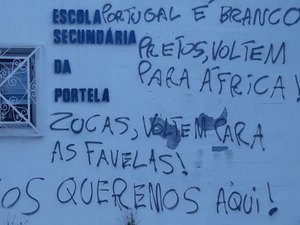 ESCOLA PORTUGAL É BRANCO
SECUNDÁRIA PRETOS, VOLTEM
DA PARA ÁFRICA!
PORTELA
ZUCAS, VOLTEM PARA
AS FAVELAS!
OS QUEREMOS AQUI!